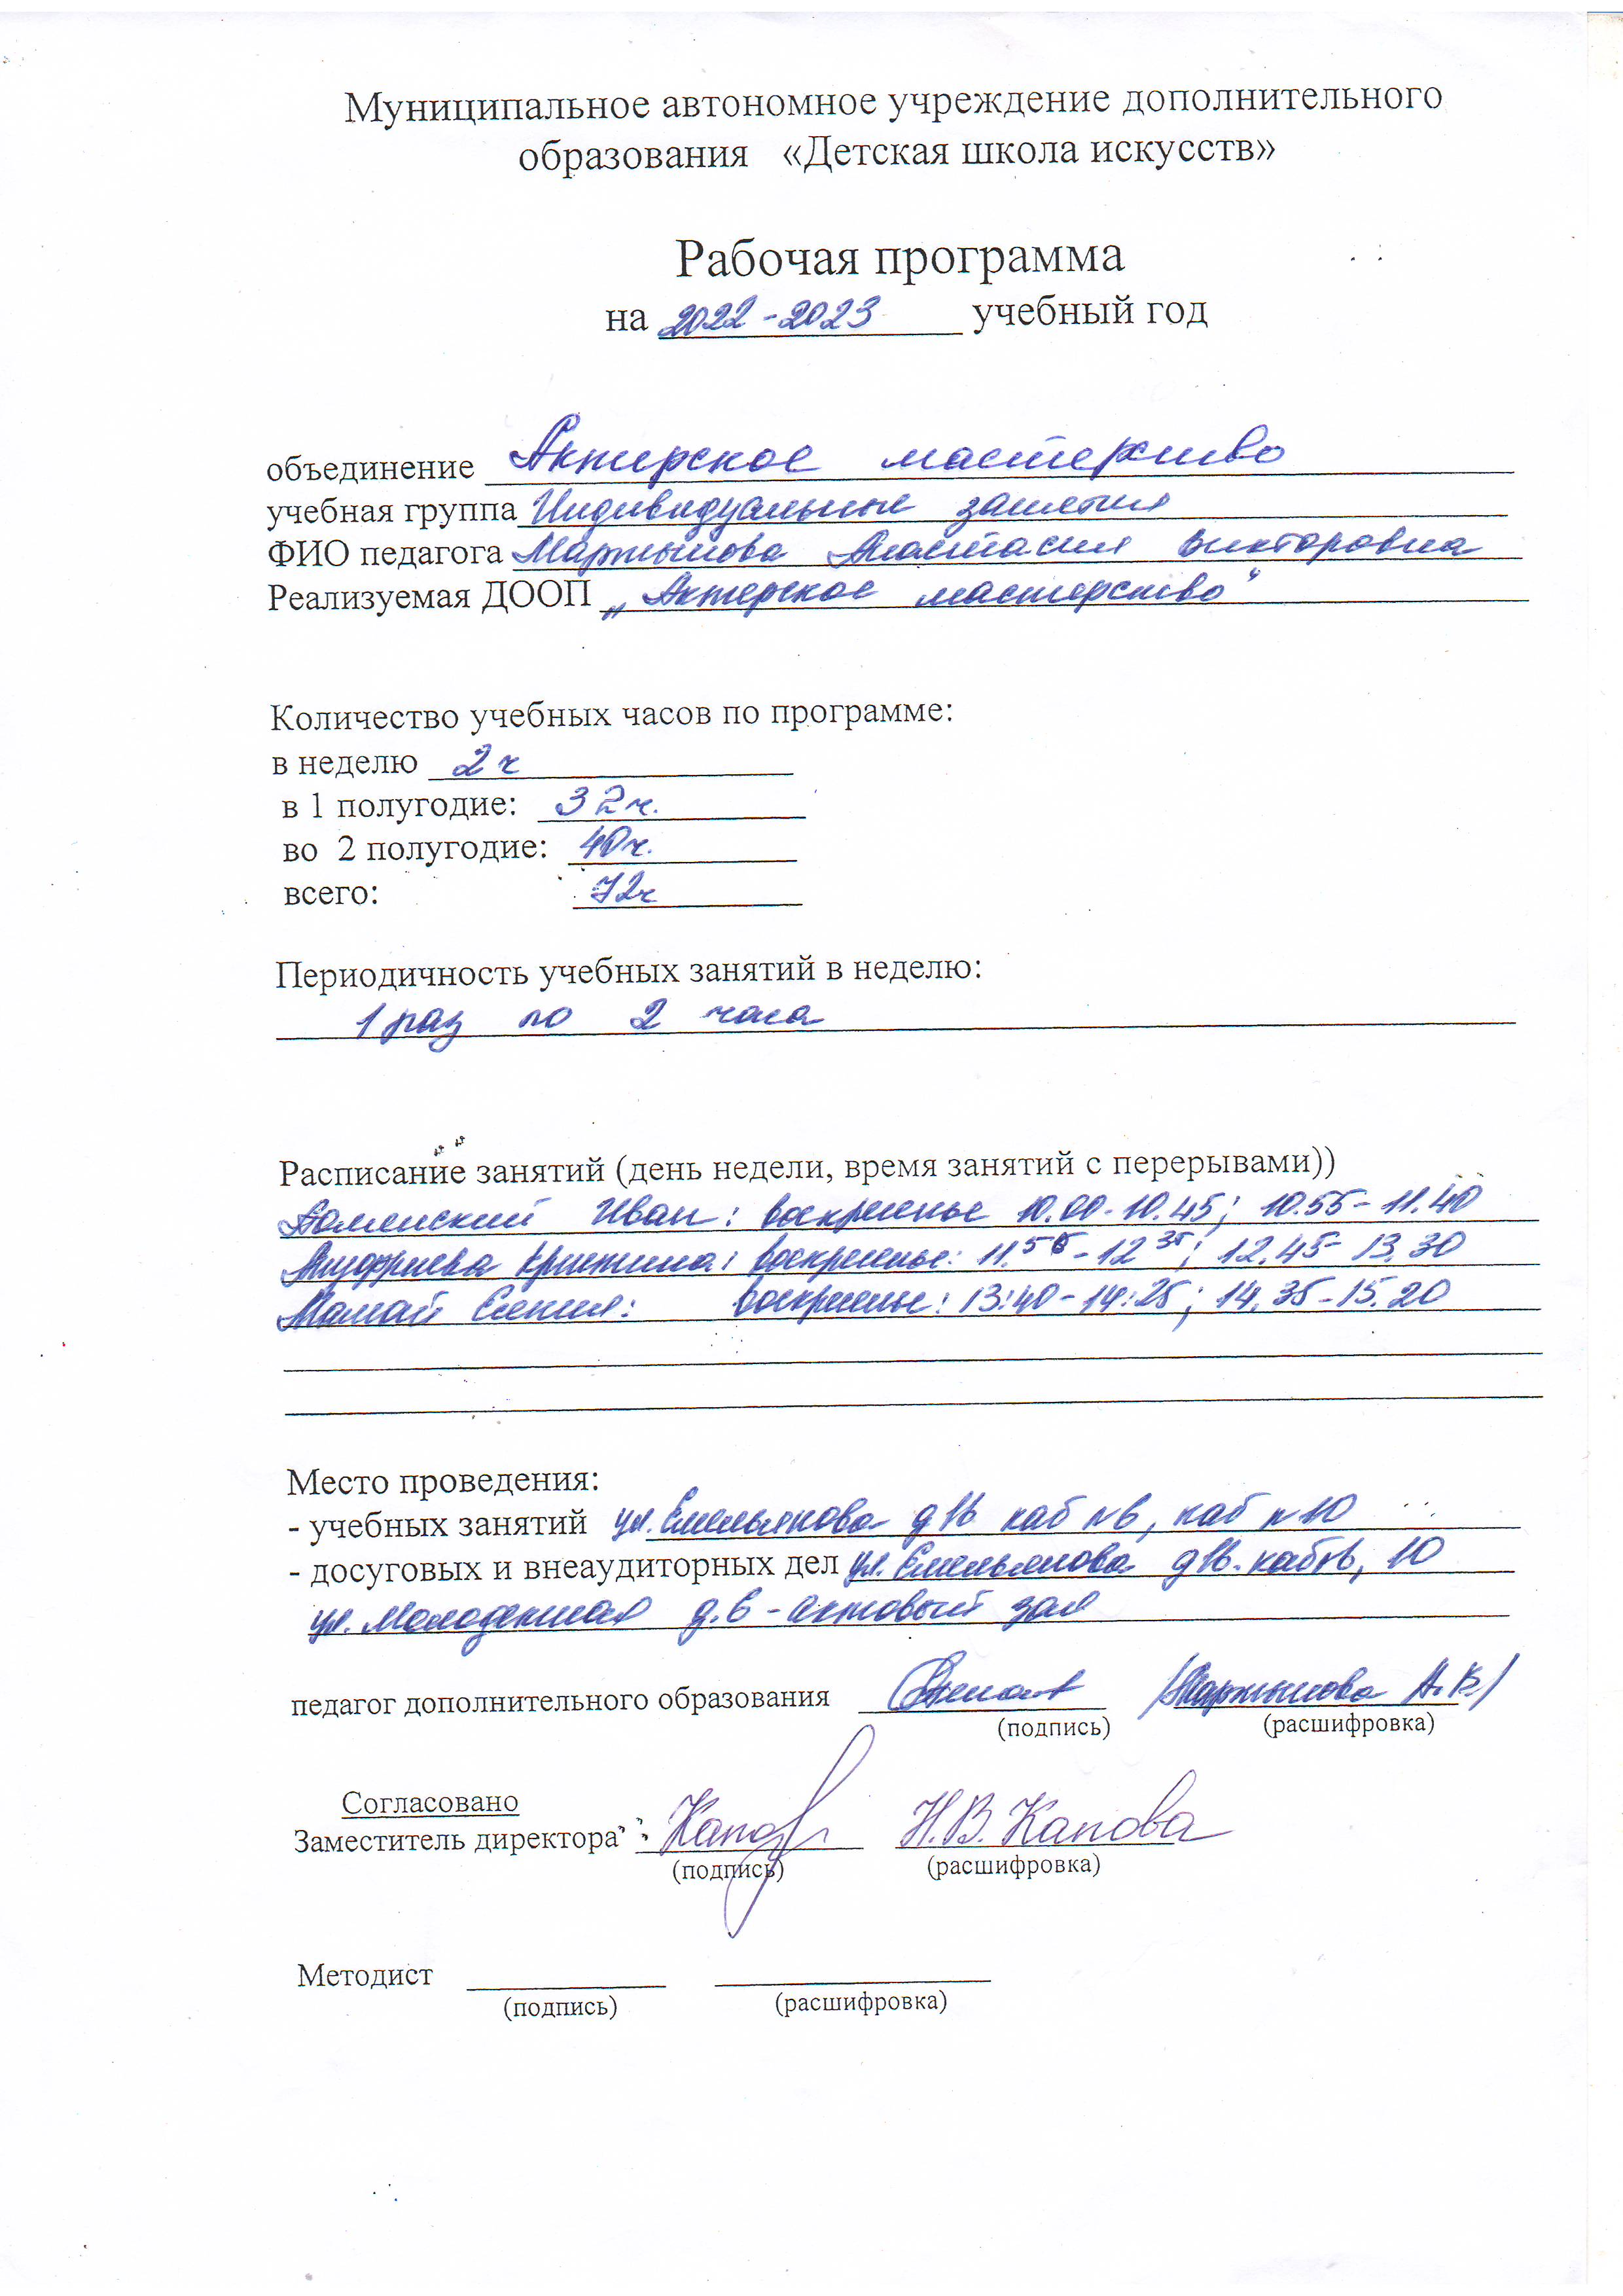 Муниципальное автономное учреждение дополнительного
образования «Детская школа искусств»
Рабочая программа
на 2022-2023 учебный год
объединение Актерское мастерство
учебная группа Индивидуальные занятия
ФИО педагога Мартынова Анастасия Викторовна
Реализуемая ДООП „Актерское мастерство“
Количество учебных часов по программе:
в неделю 2ч
в 1 полугодие: 32ч.
во 2 полугодие: 40ч.
всего: 72ч
Периодичность учебных занятий в неделю:
1 раз по 2 часа
Расписание занятий (день недели, время занятий с перерывами))
Иван: воскресенье 10.00-10.45; 10.55-11.40
Кристина: воскресенье: 12 35; 12.45-13.30
Мамай Есения: воскресенье: 13:40-14:25; 14.35-15.20
Место проведения:
- учебных занятий ул. Емельянова каб №6, каб №10
- досуговых и внеаудиторных дел ул. Емельянова 10
ул. Молодежная д.6 - актовый зал
педагог дополнительного образования /Мартынова А.В/
(подпись) (расшифровка)
Согласовано
Заместитель директора Н.В. Капова
(подпись) (расшифровка)
Методист
(подпись) (расшифровка)